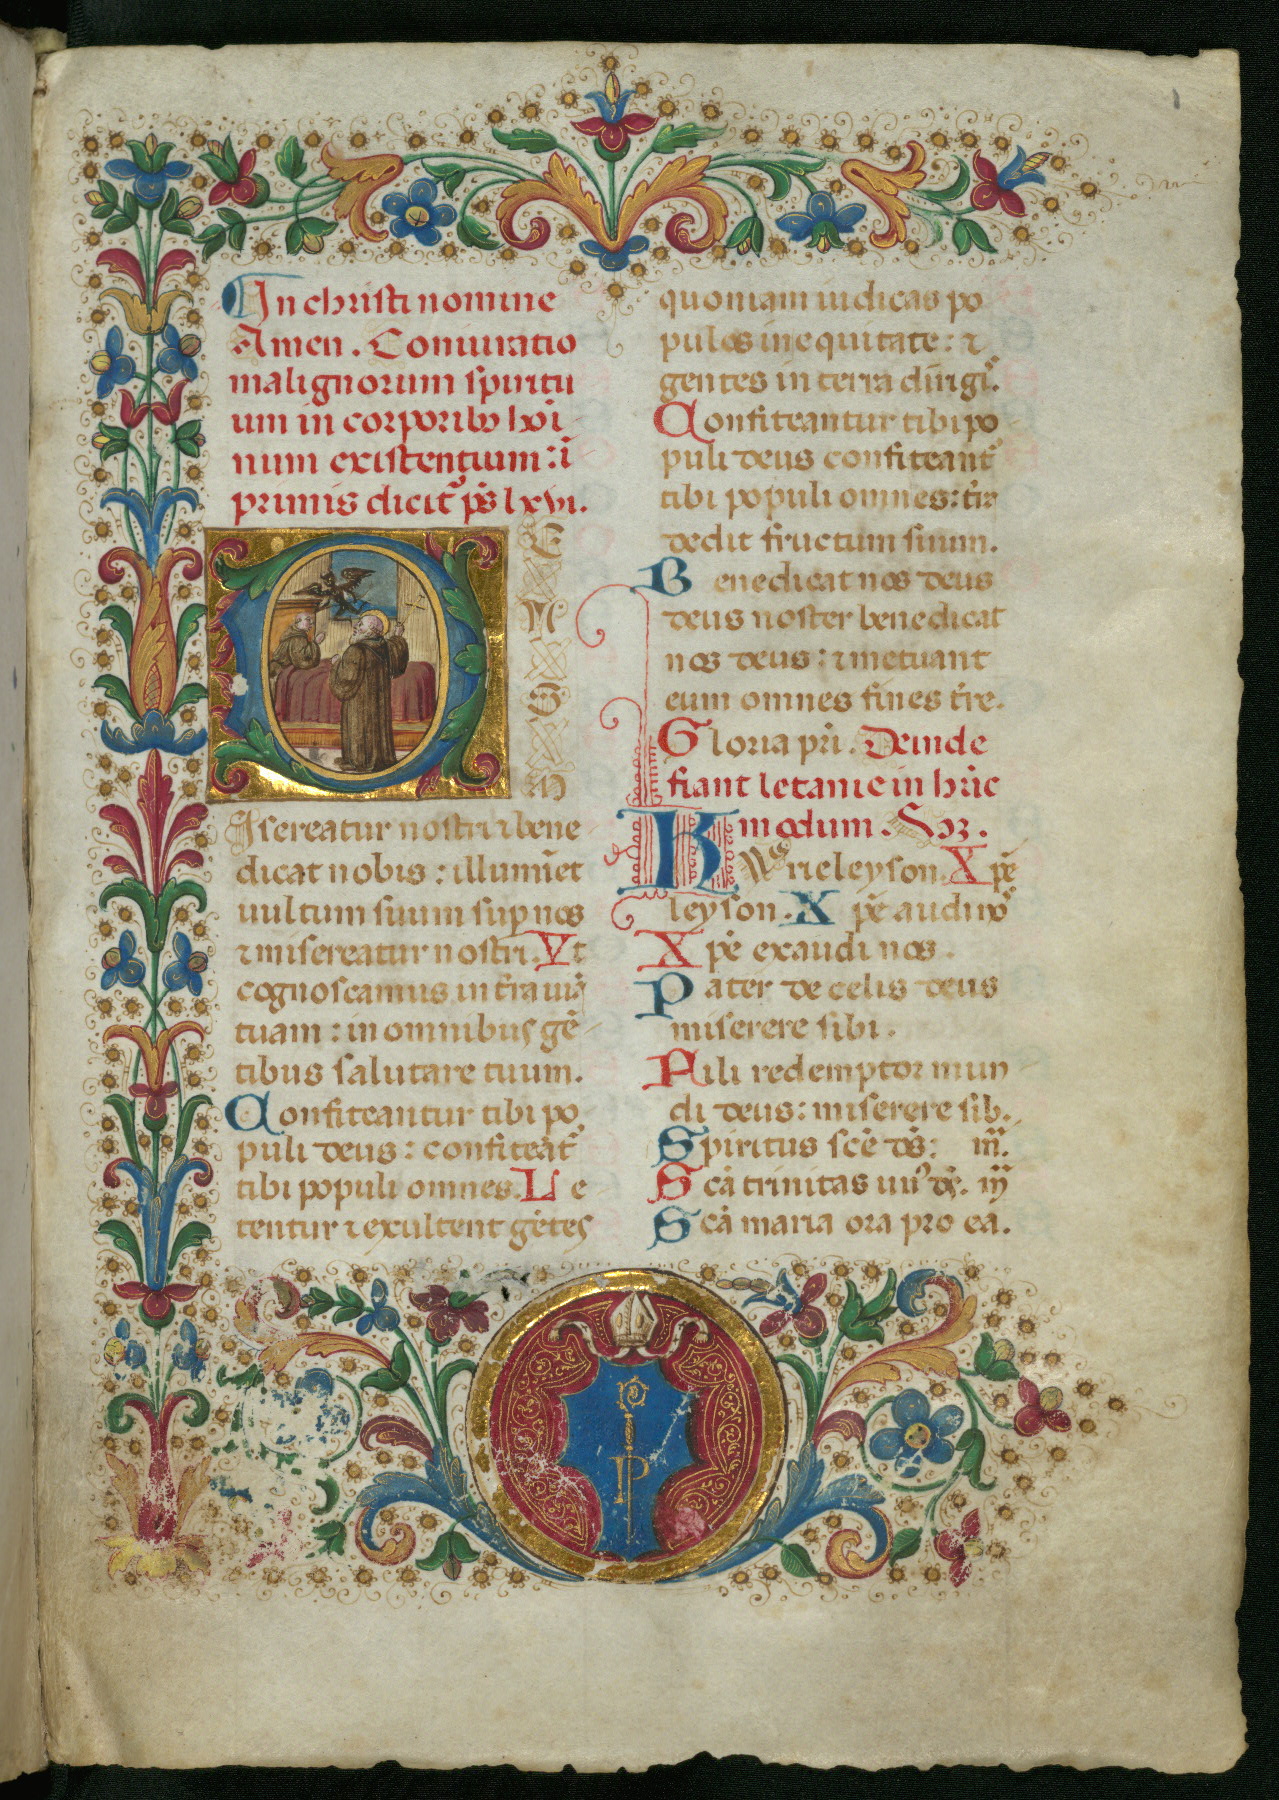 In christi nomine
Amen. Coniuratio
malignorum spiritu
um in corporibꝫ hoı̄
num existentium: ī
primis dicitᷣ ps̄ lxvi.
D E
N
S
M
isereatur nostri ⁊ bene
dicat nobis: illumīet
uultum suum suꝑ nos
⁊ misereatur nostri. Vt
cognoscamus in t̄ra uiā
tuam: in omnibus gē
tibus salutare tuum.
Confiteantur tibi po
puli deus: confiteātᷣ
tibi populi omnes. Le
tentur ⁊ exultent gētes
quoniam iudicas po
pulos in equitate: ⁊
gentes in terra dirigı̄s.
Confiteantur tibi po
puli deus confiteantᷣ
tibi populi omnes: t̄ra
dedit fructum suum.
Benedicat nos deus
deus noster benedicat
nos deus: ⁊ metuant
eum omnes fines t̄re.
Gloria pr̄i. Deinde
fiant letanie in hūc
modum.
Kyrieleyson. Xp̄e
leyson. Xp̄e audi nos
Xp̄e exaudi nos.
Pater de celis deus
miserere sibi.
Fili redemptor mun
di deus: miserere sib.
Spiritus sc̄e ds̄: m̄.
Scā trinitas unꝰ ds̄. m̄
Scā maria ora pro eā.
P